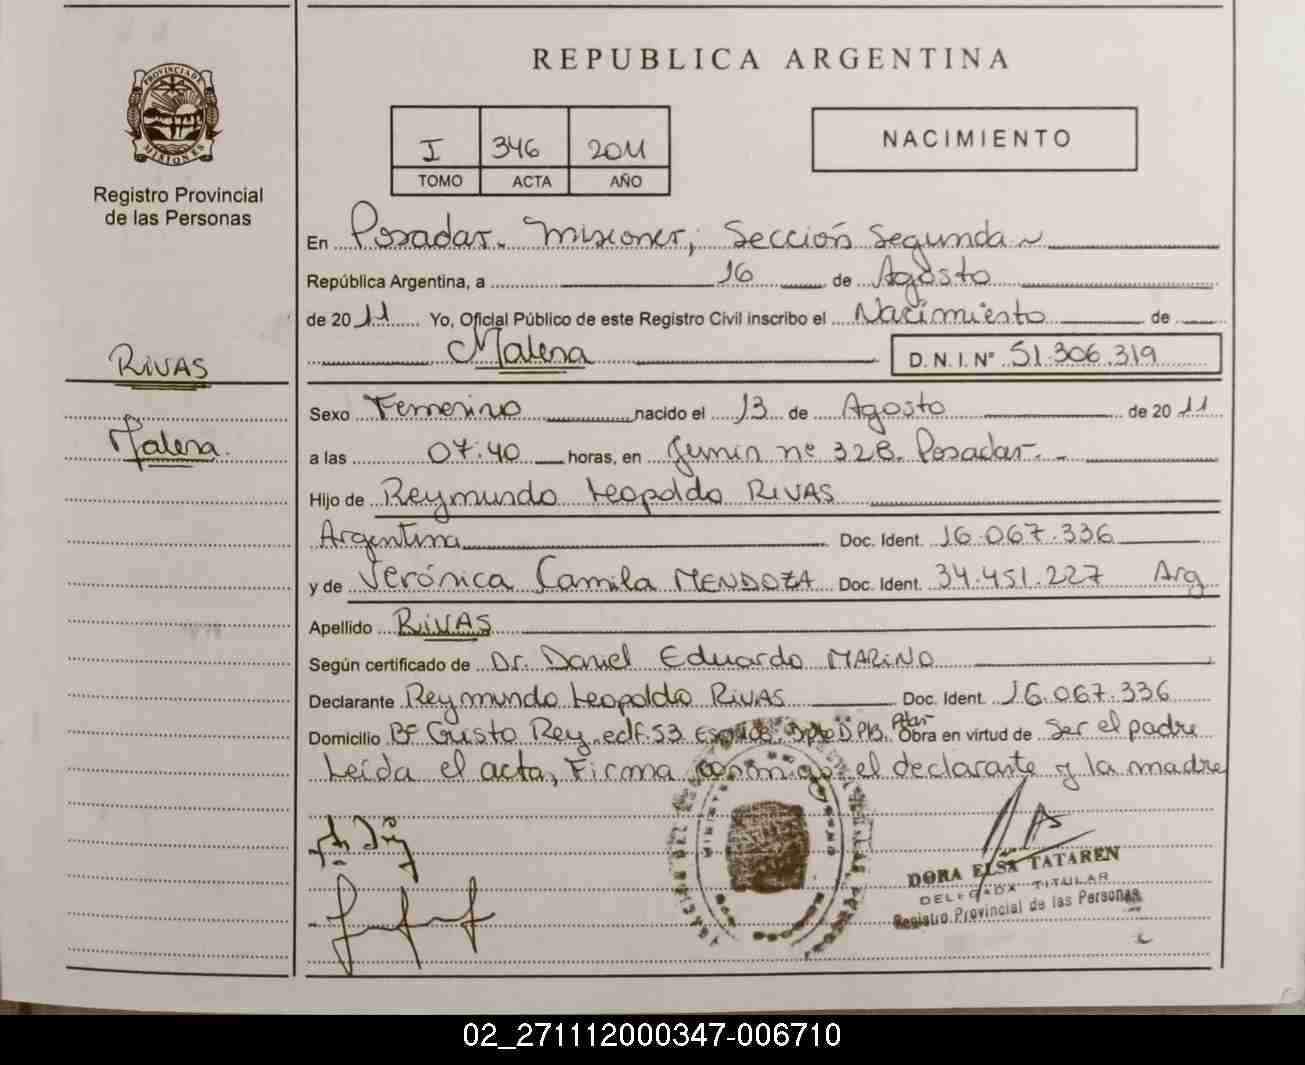 REPUBLICA ARGENTINA
PROVINCIA DE MISIONES
Registro Provincial
de las Personas
I 346 2011
TOMO ACTA AÑO
NACIMIENTO
En Posadas. Misiones, Sección Segunda
República Argentina, a 16 de Agosto
de 2011 Yo, Oficial Público de este Registro Civil inscribo el Nacimiento de
Malena D.N.I. N° 51.306.319
RIVAS
Malena.
Sexo Femenino nacido el 13 de Agosto de 2011
a las 07:40 horas, en Junin n° 328. Posadas.
Hijo de Reymundo Leopoldo RIVAS
Argentina Doc. Ident. 16.067.336
y de Verónica Camila MENDOZA Doc. Ident. 34.451.227 Arg
Apellido RIVAS
Según certificado de Dr. Daniel Eduardo MARINO
Declarante Reymundo Leopoldo RIVAS Doc. Ident. 16.067.336
Domicilio B° Gusto Rey, edf. 53 Dpto D. PB. Obra en virtud de Ser el padre
Leída el acta, Firma conmigo el declarante y la madre
DORA ELSA TATAREN
DELEGADA TITULAR
Registro Provincial de las Personas
02_271112000347-006710